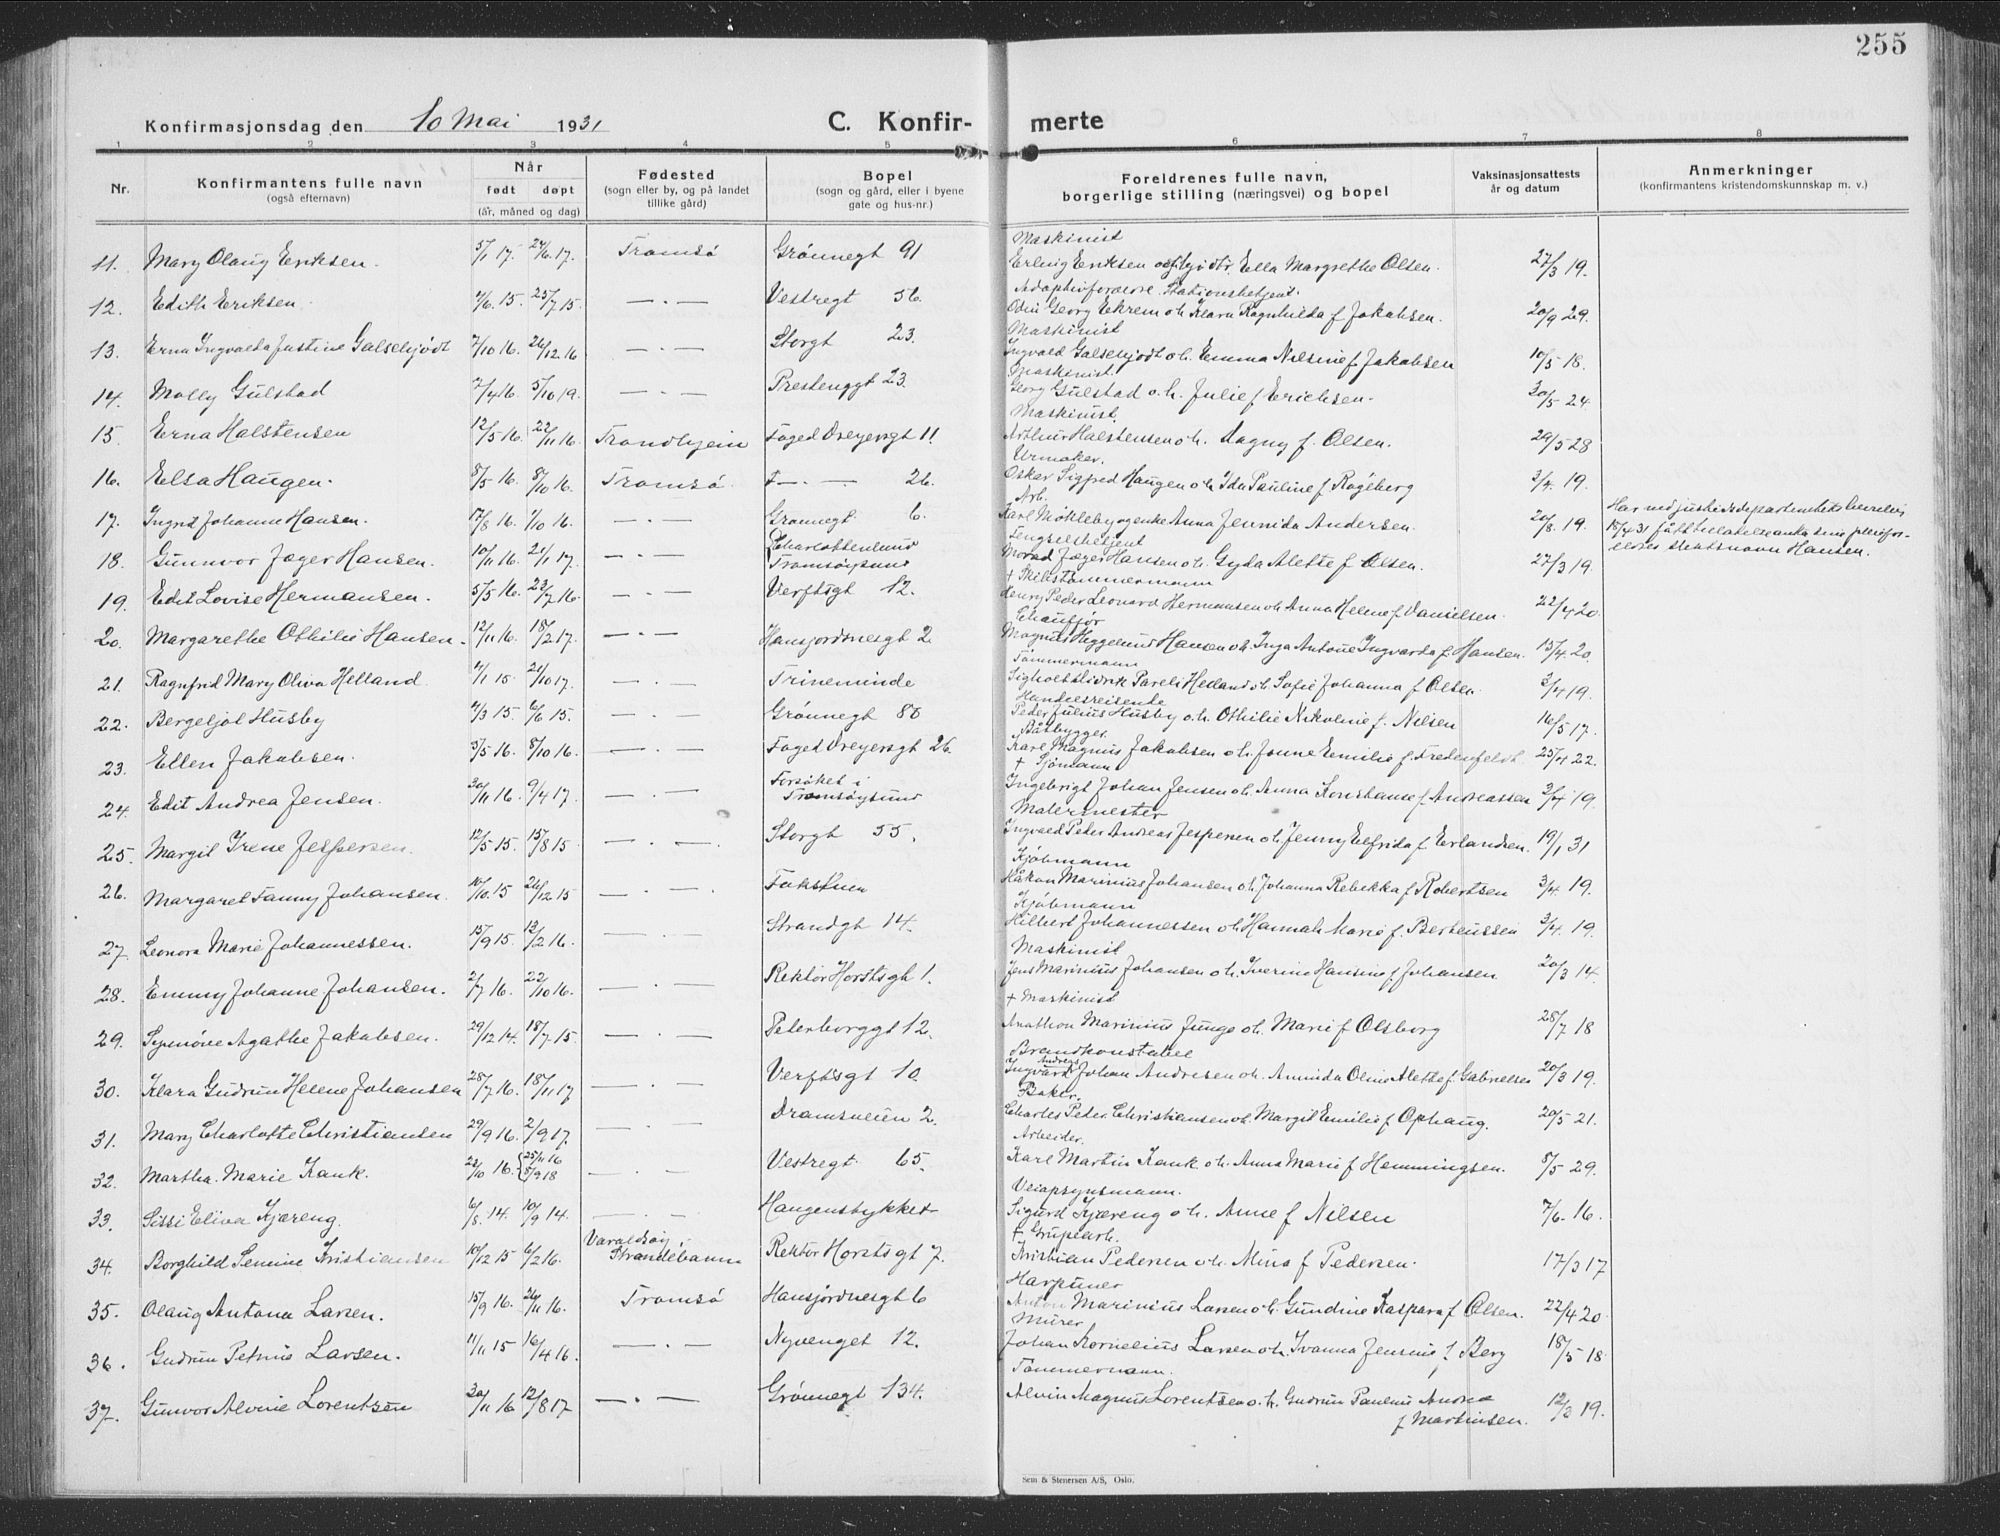 255
Konfirmasjonsdag den 10 Mai 1931 C. Konfir- merte
1 2 3 4 5 6 7 8
Nr. Konfirmantens fulle navn (også efternavn) Når født døpt (år, måned og dag) Fødested (sogn eller by, og på landet tillike gård) Bopel (sogn og gård, eller i byene gate og hus-nr.) Foreldrenes fulle navn, borgerlige stilling (næringsvei) og bopel Vaksinasjonsattests år og datum Anmerkninger (konfirmantens kristendomskunnskap m. v.)
Maskinist
11. Mary Olaug Eriksen. 5/1 17. 24/6 17. Tromsø Grønnegt 91 Erling Eriksen Ella Margrethe Olsen. 27/3 19.
Adoptivforældre. Stationsbetjent.
12. Edith Eriksen. 4/6. 15. 25/7 15. — . — Vestregt 56. Odin Georg Ekrem o.h. Klara Ragnhilda f. Jakobsen. 20/9 29.
Maskinist
13. Erna Ingvalda Justine Galschjødt 7/10 16. 26/12 16 — . — Storgt 23. Ingvald Galschjødt o.h. Emma Nilsine f. Jakobsen 10/5 18.
Maskinist.
14. Molly Gulstad 7/4 16. 5/10 19. — . — Prestenggt 23. Georg Gulstad o.h. Julie f. Erichsen. 30/5 24.
Maskinist.
15. Erna Halstensen 12/5 16. 22/11 16. Trondhjem Foged Dreyersgt 11. Arthur Halstensen o.h. Aagny f. Olsen. 29/5 28
Urmaker.
16. Elsa Haugen. 8/5 16. 8/10 16. Tromsø. F — . — 26. Oskar Sigfred Haugen o.h. Ida Pauline f. Rageberg 3/4. 19.
Arb.
17. Ingrid Johanne Hansen. 17/8 16. 1/10 16. — . — Grønnegt 6. Karl Møkleby og enke Anna Jennida Andersen. 20/8. 19. Har ved justisdepartementets bevilgn.
Fengselsbetjent 18/4 31 fått
18. Gunnvor Jæger Hansen. 10/11 16. 21/1 17. — . — Charlottenlund Tromsøysund Morad Jæger Hansen o.h. Gyda Alette f. Olsen. 27/3 19. slektsnavn Hansen.
+ Skibstømmermann
19. Edit Lovise Hermansen. 5/5 16. 23/7 16. — . — Verftsgt 12. Henry Peder Leonard Hermansen o.h. Anna Helene f. Danielsen. 22/4 20.
Chauffør
20. Margarethe Othilie Hansen. 12/11 16. 18/2 17. — . — Hansjordnesgt 2 Magnus Heggelund Hansen o.h. Inga Antonie Ingvarda f. Hansen. 15/4. 20.
Tømmermann
21. Ragnfrid Mary Oliva Helland 4/1 15. 21/10 17. — . — Trineminde Pareli Helland o.h. Sofie Johanna f. Olsen. 3/4 19.
Handelsreisende
22. Bergeljot Husby 4/3 15. 6/6 15. — . — Grønnegt 85 Peder Julius Husby o.h. Othilie Nikoline f. Nilsen 16/5 17.
Båtbygger.
23. Ellen Jakobsen. 3/5 16. 8/10 16. — . — Foged Dreyersgt 26. Karl Magnus Jakobsen o.h. Jonne Emilie f. Fredenfeldt. 25/4 22.
+ Sjømann
24. Edit Andrea Jensen. 30/11 16. 9/4 17. — . — Forsøket i Tromsøysund Ingebrigt Johan Jensen o.h. Anna Konstanse f. Andreassen 3/4 19.
Malermester
25. Margit Irene Jespersen. 12/5 15. 15/8 15. — . — Storgt 55. Ingvald Peder Andreas Jespersen o.h. Jenny Elfrida f. Erlandsen. 19/1 31
Kjøbmann
26. Margaret Fanny Johansen. 10/10. 15 26/12 15 — . — . Håkon Marinius Johansen o.h. Johanna Rebekka f. Robertsen 3/4. 19.
Kjøbmann
27. Leonora Marie Johannessen. 15/9 15. 13/2 16. — . — Strandgt 14. Hilbert Johannessen o.h. Hannah Marie f. Berteussen 3/4. 19.
Maskinist
28. Emmy Johanne Johansen. 2/7 16. 22/10 16. — . — Rektor Horstsgt 1. Jens Marinius Johansen o.h. Iverine Hansine f. Johansen 20/3 14.
+ Maskinist
29. Synnöve Agathe Jakobsen. 29/12 14. 18/7 15. — . — Peterborggt 12. Anathon Marinius Junge o.h. Marie f. Olsborg 28/7 18
Brandkonstabel
30. Klara Gudrun Helene Johansen 28/7 16. 18/11 17 — . — Verftsgt 10. Ingvard Andreas Johan Andresen o.h. Aminda Oline Alette f. Gabrielsen 20/3 19.
Baker.
31. Mary Charlotte Christiansen 29/9 16. 2/9 17. — . — Dramsveien 2. Charles Peder Christiansen o.h. Margit Emilie f. Ophaug. 20/5 21.
Arbeider.
32. Martha Marie Kank. 22/10 16. 25/11 16 5/9 18 — . — Vestregt 65. Karl Martin Kank o.h. Anna Marie f. Hemmingsen. 8/5 29.
Veiopsynsmann.
33. Sissi Eliva Kjæreng. 6/8. 14. 10/9 14. — . — Haugensbykket Sigurd Kjæreng o.h. Anne f. Nilsen 7/6. 16.
+ Grupearb.
34. Borghild Senine Kristiansen 10/12 15 6/2 16. Varaldsøy Strandebarm Rektor Horstsgt 7. Kristian Pedersen o.h. Mina f. Pedersen. 17/3 17
Harpuner
35. Olaug Antona Larsen. 15/9 16. 26/11 16. Tromsø Hansjordnesgt 6 Anton Marinius Larsen o.h. Gundine Kaspara f. Olsen. 22/4 20.
Mürer
36. Gudrun Petrine Larsen. 11/11 15 16/4 16. — . — Nyvenget 12. Johan Kornelius Larsen o.h. Ivanna Jensine f. Berg 18/5 18.
Tømmermann.
37. Gunvor Alvine Lorentzen 30/11 16 12/8 17 — . — Grønnegt 134. Alvin Magnus Lorentsen o.h. Gudrun Pauline Andrea f. Martinsen. 12/3 19.
Sem & Stenersen A/S, Oslo.